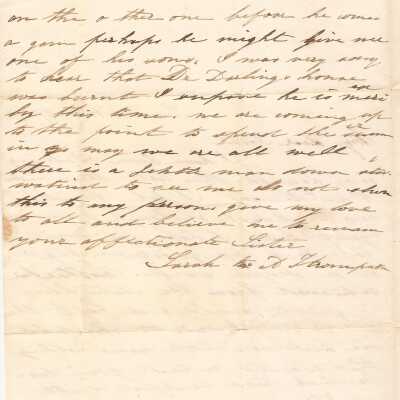 on the other one before he comes
a gain perhaps he might give me
one of his sons, I was very sorry
to hear that Dr Darlings house
was burnt I supose he is mari ed
by this time. we are coming up
to the point to spend the
in may we are all well
there is a man down
to see me do not show
this to any person, give my love
to all and believe me to remain
your affectionate Sister
Sarah A Thompson